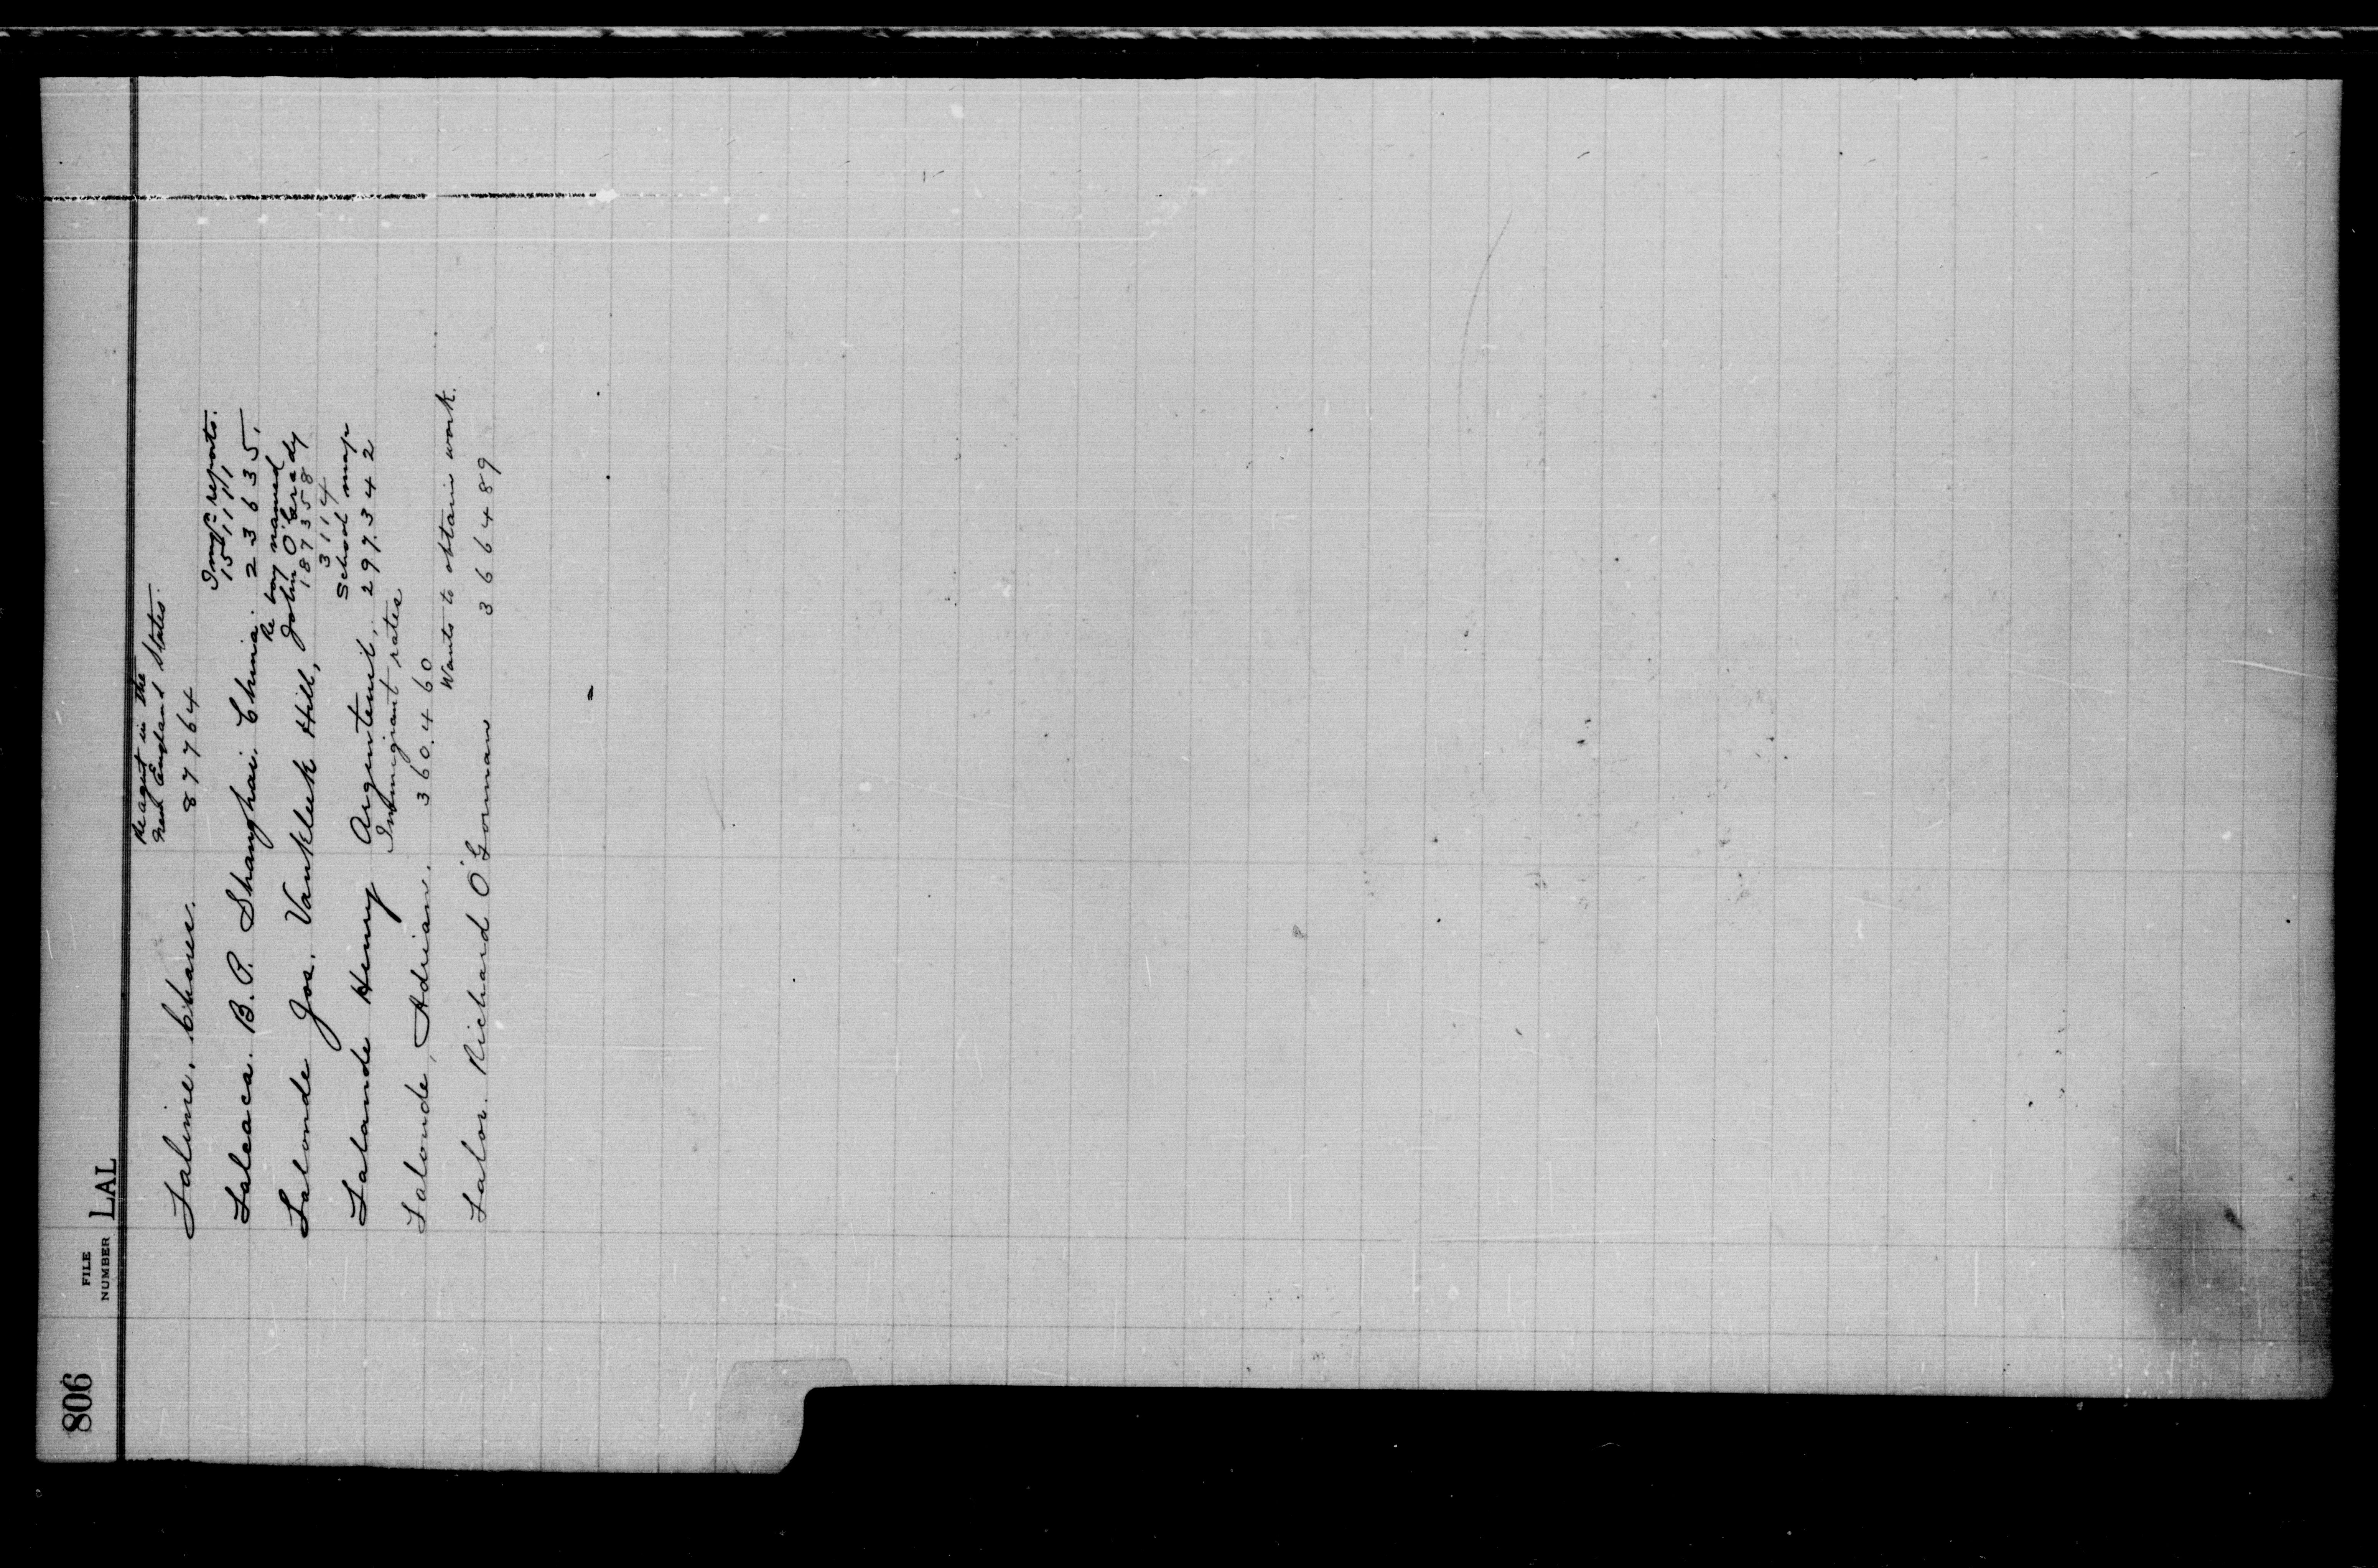 806 FILE NUMBER LAL
Re agent in the
New England States.
Lalime, Chase. 87764
Immgn reports.
151111
Lalcaca. B.P. Shanghai. China. 23635.
Re boy named
John O'Grady
Lalonde Jos. Vankleek Hill, 187358
3114
School map
Lalande Henry Argenteuil, 297342
Immigrant rates
Lalonde, Adrian. 360460
Wants to obtain work.
Lalor. Richard O'Gorman 366489